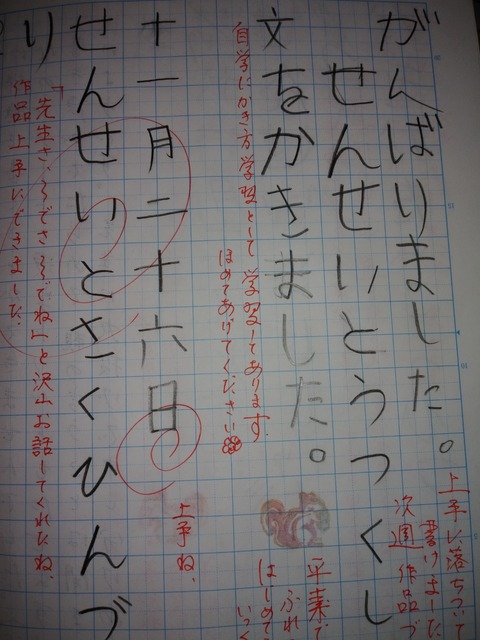 上手に落ちついて
書けました
がんばりました。
次週 作品づ
せんせいとうつくし
文をかきました。
自学にかき方学習として 学習してあります。
ほめてあげてください
十一月二十六日
上手ね、
せんせいとさくひんづ
り
と沢山お話してくれたね、
作品上手にできました。